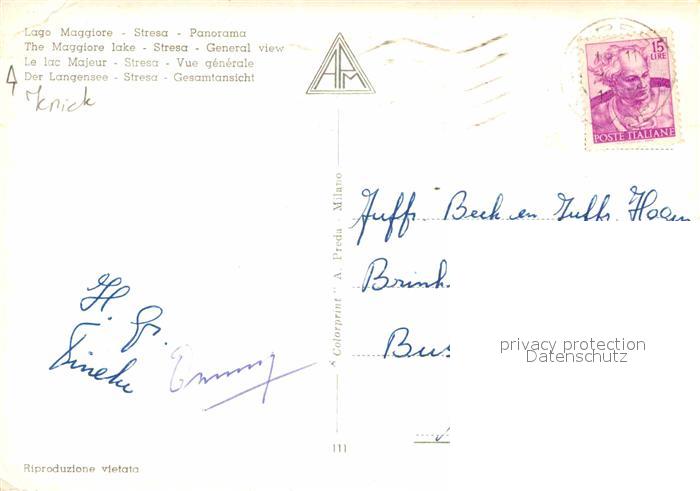 Lago Maggiore - Stresa - Panorama
The Maggiore lake - Stresa - General view
Le lac Majeur - Stresa - Vue générale
Der Langensee - Stresa - Gesamtansicht
Knick
APM
15
LIRE
POSTE ITALIANE
"Colorprint" A. Preda - Milano
Juffr. Beck en Juffr. Haan
Brink
Bus
privacy protection
Datenschutz
H. Gr.
Tineke
Emmy
111
Riproduzione vietata